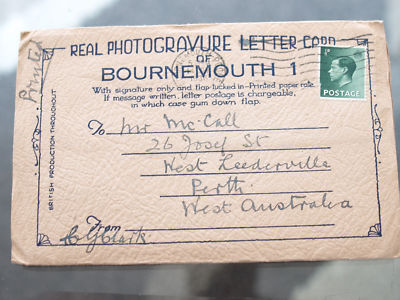 Printed
REAL PHOTOGRAVURE LETTER CARD
OF
BOURNEMOUTH 1
With signature only and flap tucked in-Printed paper rate.
If message written, letter postage is chargeable,
in which case gum down flap.
POSTAGE
BRITISH PRODUCTION THROUGHOUT
To Mr Mc-Call
26 Josef St
West Leederville
Perth
West Australia
From
C G Clark.